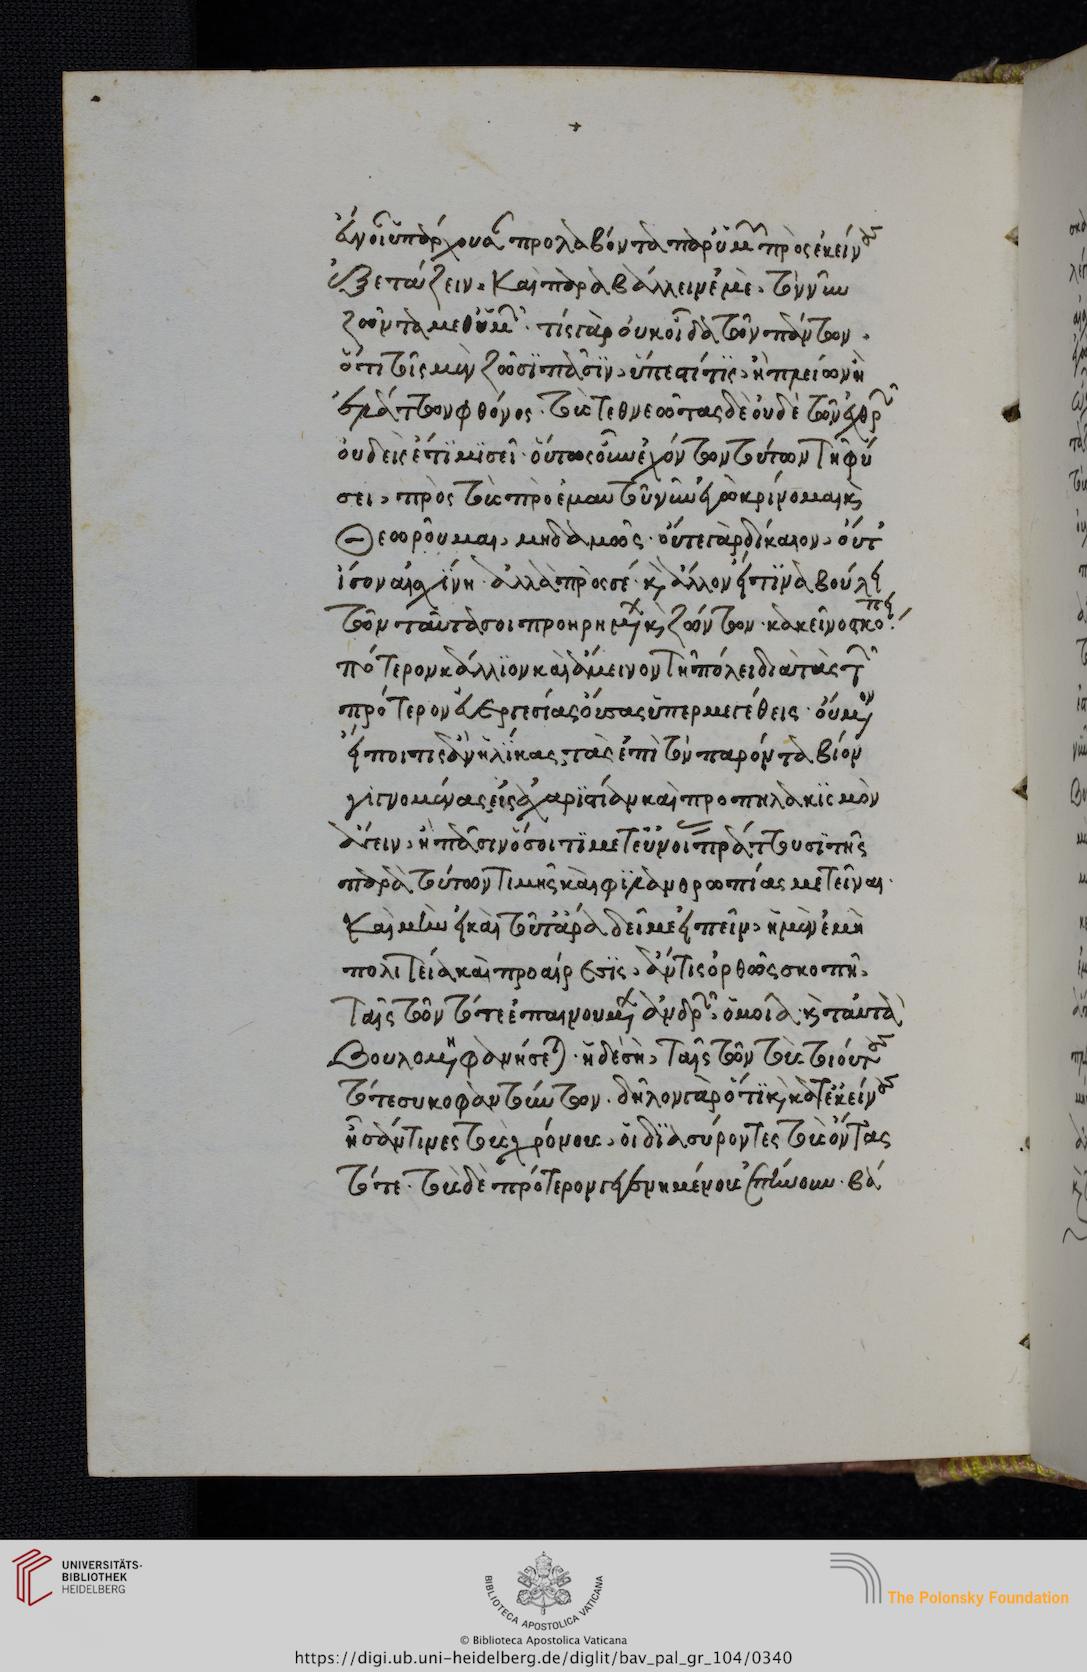 εὔνοιαν ὑπάρχουσαν προλαβόντα παρ' ὑμῶν πρὸς ἐκείνους
ἐξετάζειν. καὶ παραβάλλειν ἐμὲ, τὸν νῦν
ζῶντα μεθ' ὑμῶν. τίς γὰρ οὐκ οἶδα τῶν πάντων,
ὅτι τοῖς μὲν ζῶσι πᾶσιν, ὕπεστί τις, ἢ πλείων ἢ
ἐλάττων φθόνος. τοὺς τεθνεῶτας δὲ οὐδὲ τῶν ἐχθρῶν
οὐδεὶς ἔτι μισεῖ· οὕτως οὖν ἐχόντων τούτων τῇ φύ
σει, πρὸς τοὺς πρὸ ἐμαυτοῦ νῦν ἐγὼ κρίνομαι καὶ
θεωροῦμαι, μηδαμῶς· οὔτε γὰρ δίκαιον, οὔτ'
ἴσον αἰσχίνη· ἀλλὰ πρὸς σέ· καὶ ἄλλον εἴ τινα βούλει
τῶν ταῦτά σοι προηρημένων καὶ ζώντων· κἀκεῖνο σκόπει·
πότερον κάλλιον καὶ ἄμεινον τῇ πόλει διὰ τὰς τῶν
πρότερον εὐεργεσίας οὔσας ὑπερμεγέθεις· οὐ μὲν οὖν
εἴποι τις ἂν ἡλίκας, τὰς ἐπὶ τὸν παρόντα βίον
γιγνομένας εἰς ἀχαριστίαν καὶ προπηλακισμὸν
ἄγειν, ἢ πᾶσιν ὅσοι τι μετ' εὐνοίας πράττουσι τῆς
παρὰ τούτων τιμῆς καὶ φιλανθρωπίας μετεῖναι·
καὶ μὴν εἰ καὶ τοῦτ' ἄρα δεῖ με εἰπεῖν, ἡ μὲν ἐμὴ
πολιτεία καὶ προαίρεσις, ἄν τις ὀρθῶς σκοπῇ,
ταῖς τῶν τότε ἐπαινουμένων ἀνδρῶν, ὁμοία καὶ ταυτὰ
βουλομένη φανήσεται· ἡ δὲ σὴ, ταῖς τῶν τοὺς τοιούτους
τότε συκοφαντούντων. δῆλον γὰρ ὅτι καὶ κατ' ἐκείνους
ἦσάν τινες τοὺς χρόνους, οἳ διασύροντες τοὺς ὄντας
τότε· τοὺς δὲ πρότερον γεγενημένους ἐπῄνουν· βα
UNIVERSITÄTS-
BIBLIOTHEK
HEIDELBERG
BIBLIOTECA APOSTOLICA VATICANA
The Polonsky Foundation
© Biblioteca Apostolica Vaticana
https://digi.ub.uni-heidelberg.de/diglit/bav_pal_gr_104/0340